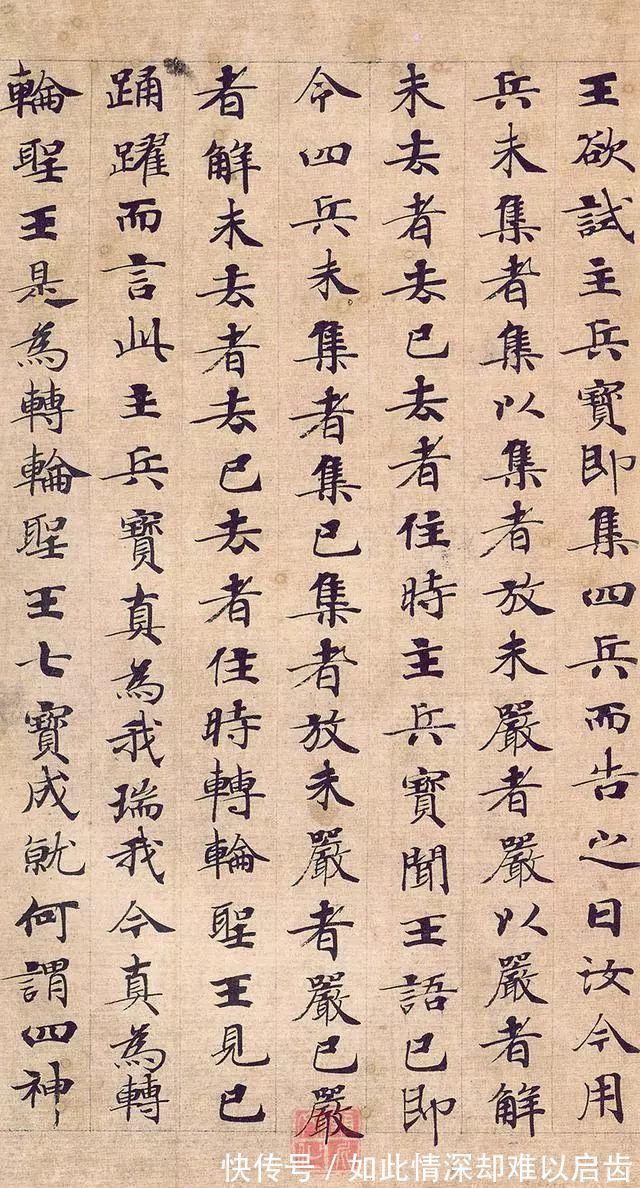 王欲試主兵寶即集四兵而告之曰汝今用
兵未集者集以集者放未嚴者嚴以嚴者解
未去者去已去者住時主兵寶聞王語已即
令四兵未集者集已集者放未嚴者嚴已嚴
者解未去者去已去者住時轉輪聖王見已
踊躍而言此主兵寶真為我瑞我今真為轉
輪聖王是為轉輪聖王七寶成就何謂四神
快传号/如此情深却难以启齿